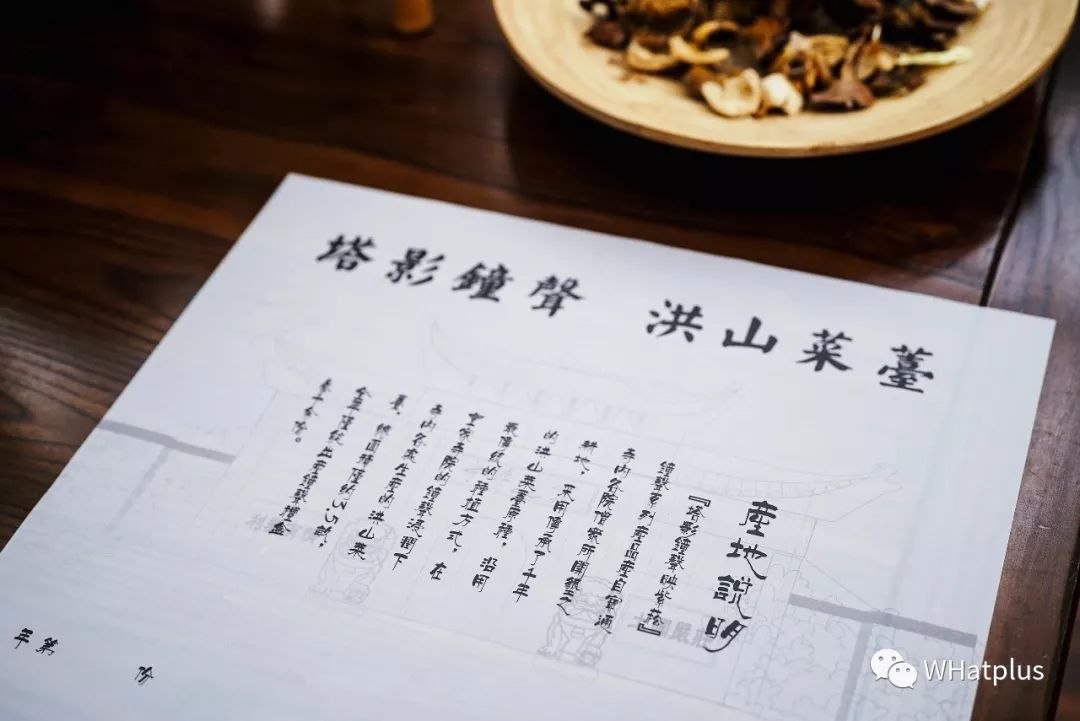 塔影鐘聲 洪山菜薹
產地說明
『塔影鐘聲映紫菘』
鐘聲系列產品產自寶通
寺內各院僧眾所開墾之
耕地，采用傳承了千年
的洪山菜薹原種，沿用
最傳統的種植方式，在
皇家寺院的鐘聲浸潤下
寺內各處生產的洪山菜
薹，總面積僅約3.5畝，
全年僅能出產鐘聲禮盒
壹千余份。
年第 份
WHatplus